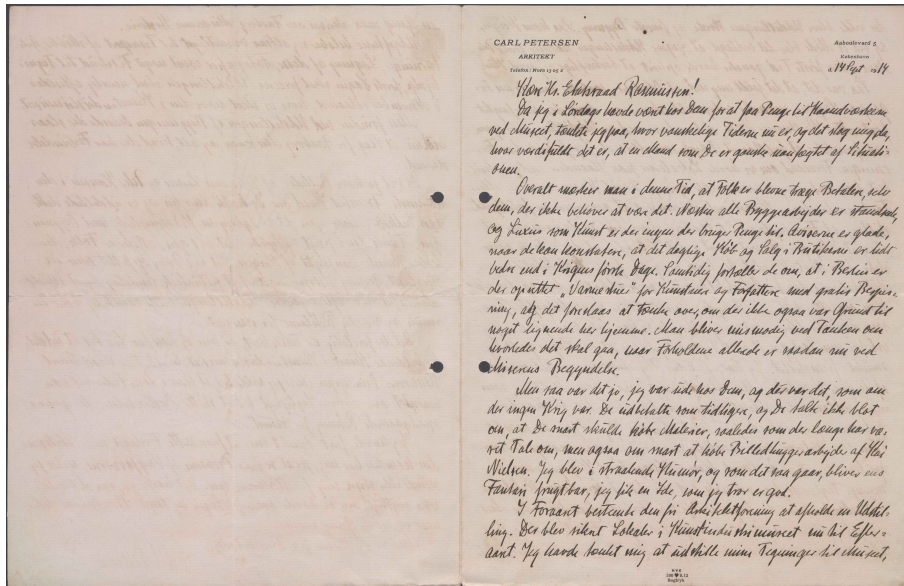 CARL PETERSEN
ARKITEKT
Telefon: Nora 1305 x
Aaboulevard 5
København
d. 14 Sept 1914
Kære Hr. Etatsraad Rasmussen!
Da jeg i Lørdags havde været hos Dem for at faa Penge til Haandværkerne
ved Museet, tænkte jeg paa, hvor vanskelige Tiderne nu er, og det slog mig da,
hvor værdifuldt det er, at en Mand som De er ganske uanfægtet af Situati-
onen.
Overalt mærker man i denne Tid, at Folk er blevne træge Betalere, selv
dem, der ikke behøver at være det. Næsten alle Byggearbejder er standsede,
og Luxus som Kunst er der ingen der bruger Penge til. Aviserne er glade,
naar de kan konstatere, at det daglige Køb og Salg i Butikerne er lidt
bedre end i Krigens første Dage. Samtidig fortæller de om, at i Berlin er
der oprettet "Varmestue" for Kunstnere og Forfattere med gratis Bespis-
ning, og det foreslaas at tænke over, om der ikke ogsaa var Grund til
noget lignende her hjemme. Man bliver mismodig ved Tanken om
hvorledes det skal gaa, naar Forholdene allerede er saadan nu ved
Miserens Begyndelse.
Men saa var det jo, jeg var ude hos Dem, og der var det, som om
der ingen Krig var. De udbetalte som tidligere, og De talte ikke blot
om, at De snart skulde købe Malerier, saaledes som der længe har væ-
ret Tale om, men ogsaa om snart at købe Billedhuggerarbejder af Kai
Nielsen. Jeg blev i straalende Humør, og som det saa gaar, bliver ens
Fantasi frugtbar, jeg fik en Ide, som jeg tror er god.
I Foraaret bestemte den fri Arkitektforening at afholde en Udstil-
ling. Der blev sikret Lokaler i Kunstindustrimuseet nu til Efter-
aaret. Jeg havde tænkt mig at udstille mine Tegninger til Museet,